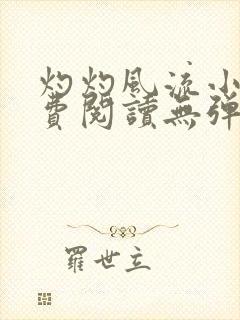 灼灼風流小
費閱讀無彈
羅世立